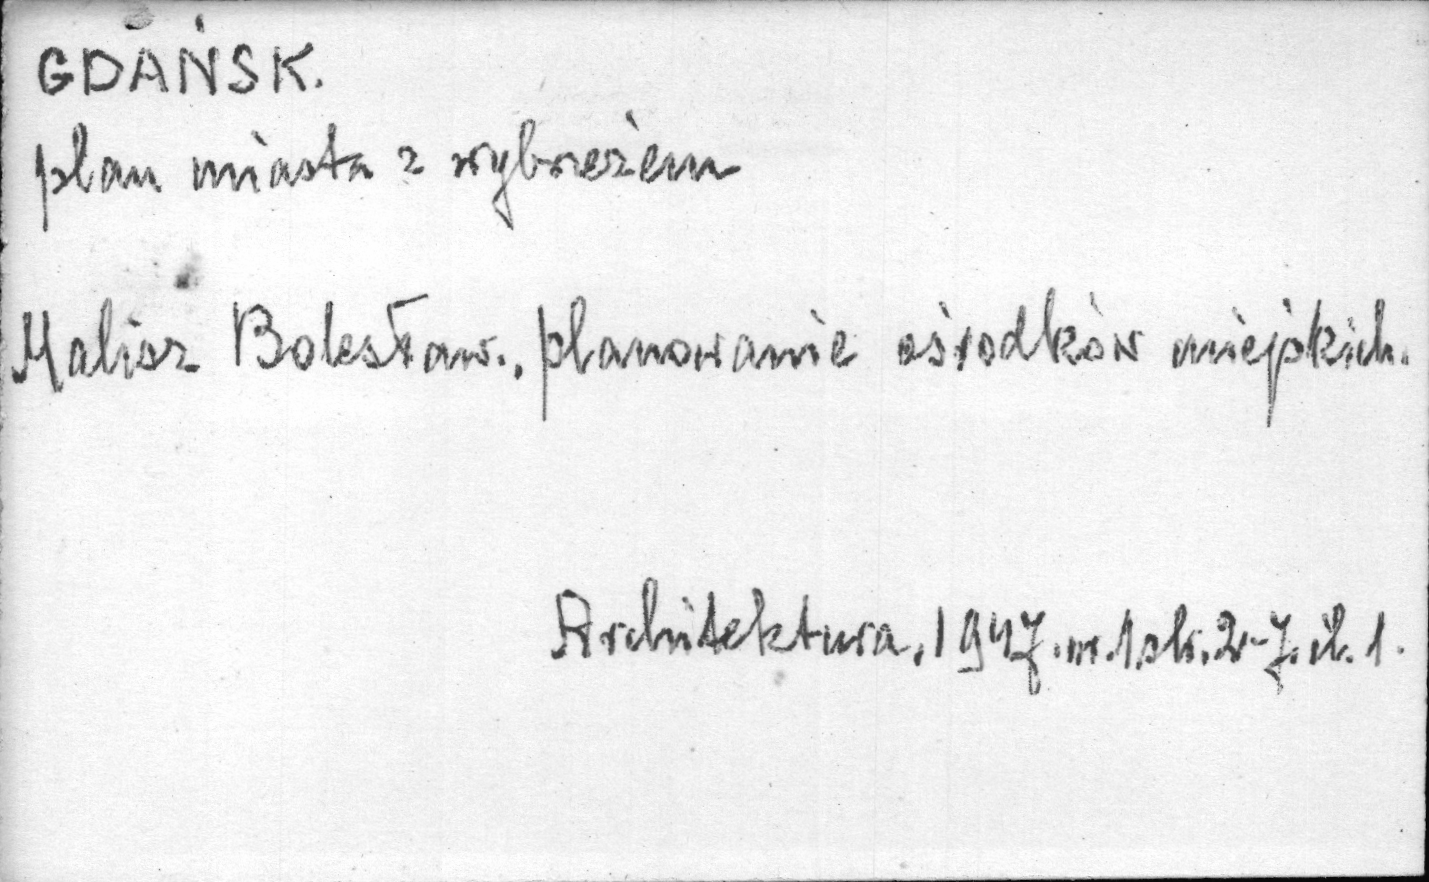 GDAŃSK.
plan miasta z wybrzeżem
Malisz Bolesław., planowanie ośrodków miejskich.
Architektura, 1947. nr. 1 str. 2-7. il. 1.